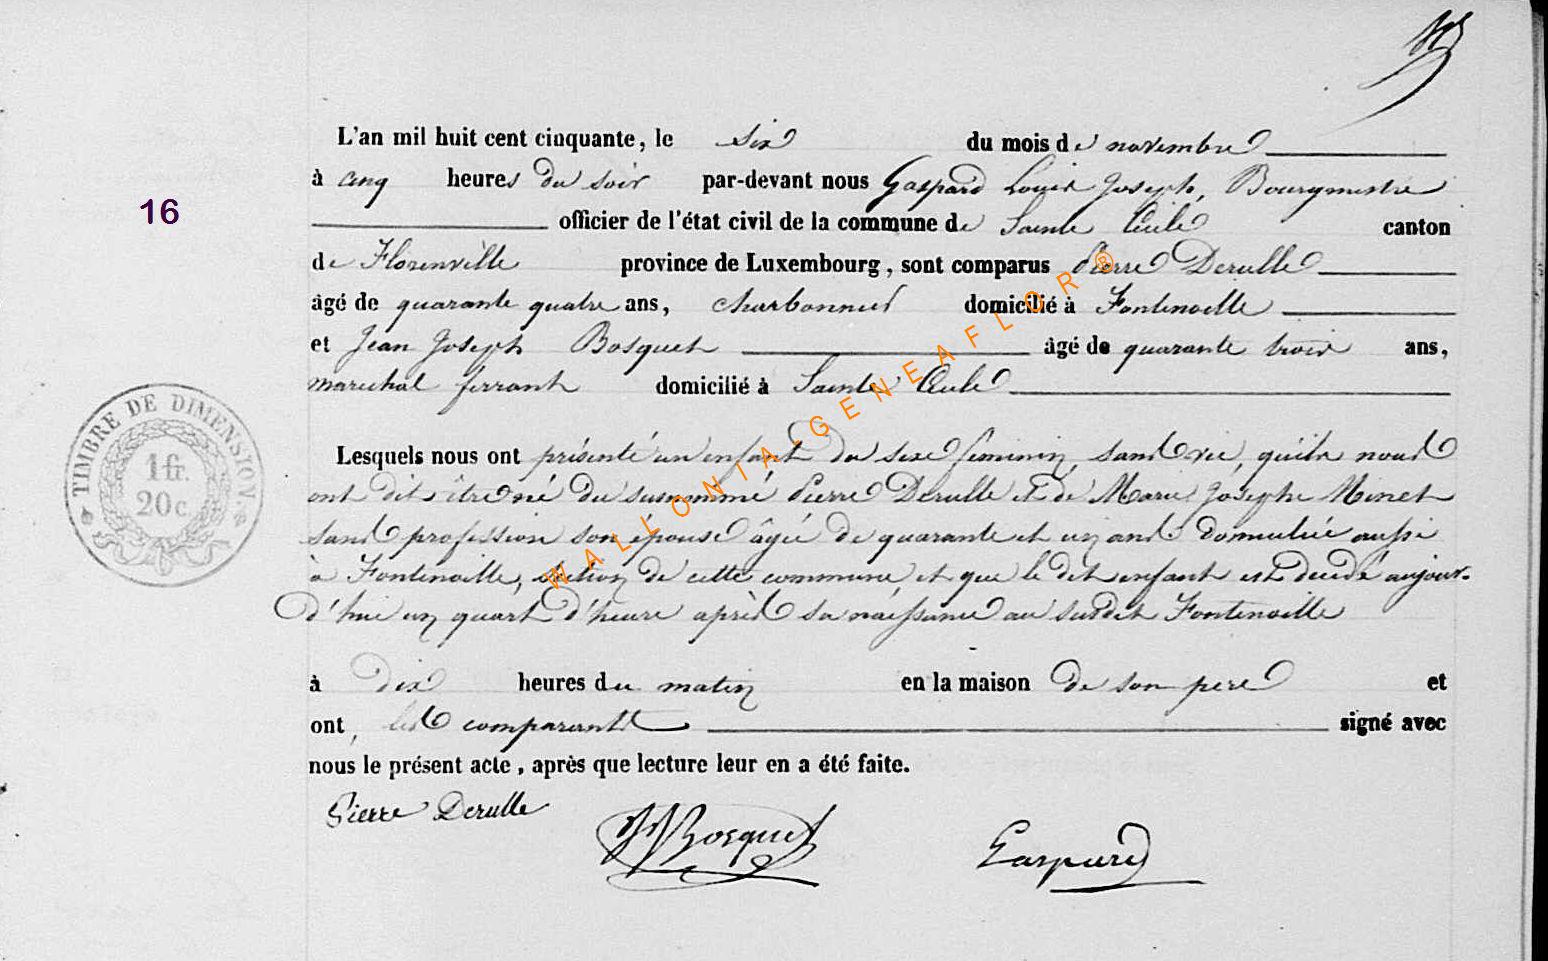 L'an mil huit cent cinquante, le six du mois de novembre
à cinq heures du soir par-devant nous Gaspard Louis Joseph, Bourgmestre
16
officier de l'état civil de la commune de Sainte Cécile canton
de Florenville province de Luxembourg, sont comparus Pierre Derulle
âgé de quarante quatre ans, charbonnier domicilié à Fontenoille
et Jean Joseph Bosquet âgé de quarante trois ans,
marechal ferrant domicilié à Sainte Cécile
TIMBRE DE DIMENSION
1 fr.
20 c.
WALLONIA-GENEAFLOR®
Lesquels nous ont présenté un enfant du sexe feminin, sans vie, qu'ils nous
ont dit être né du susnommé Pierre Derulle et de Marie Josephe Minet
sans profession son épouse âgée de quarante et un ans domiciliée aussi
à Fontenoille, section de cette commune, et que le dit enfant est decedé aujour-
d'hui un quart d'heure après sa naissance au susdit Fontenoille
à dix heures du matin en la maison de son pere et
ont, les comparants signé avec
nous le présent acte, après que lecture leur en a été faite.
Pierre Derulle JJ Bosquet Gaspard